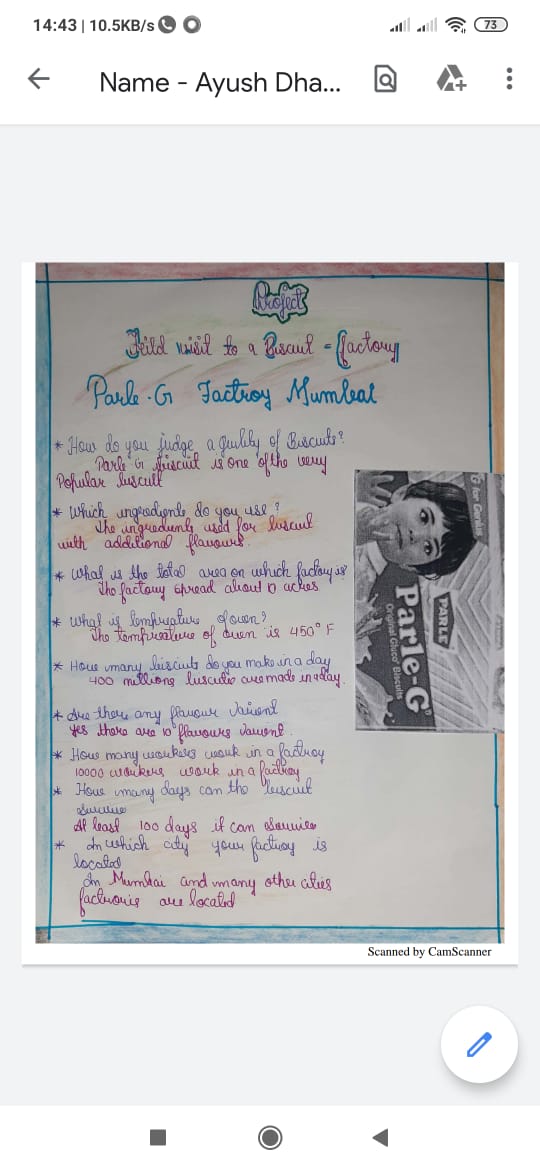 14:43 | 10.5KB/s
73
Name - Ayush Dha...
Project
Feild visit to a Biscuit - factory
Parle-G Factroy Mumbai
* How do you judge a qulity of Biscuits?
Parle G Biscuit is one of the very
Popular biscuit
* Which ingredients do you use ?
The ingredients used for biscuit
with additional flavours.
* What is the total area on which factory is?
The factory spread about 10 acres
* What is temprature of oven?
The temprature of oven is 450° F
* How many biscuits do you make in a day
400 millions biscuits are made in a day.
* Are there any flavour varient
Yes there are 10 flavours varient.
* How many workers work in a factroy
10000 workers work in a factroy
* How many days can the biscuit
survive
At least 100 days it can survive
* In which city your factroy is
located
In Mumbai and many other cities
factrories are located
G for Genius
PARLE
Parle-G
Original Gluco Biscuits
Scanned by CamScanner